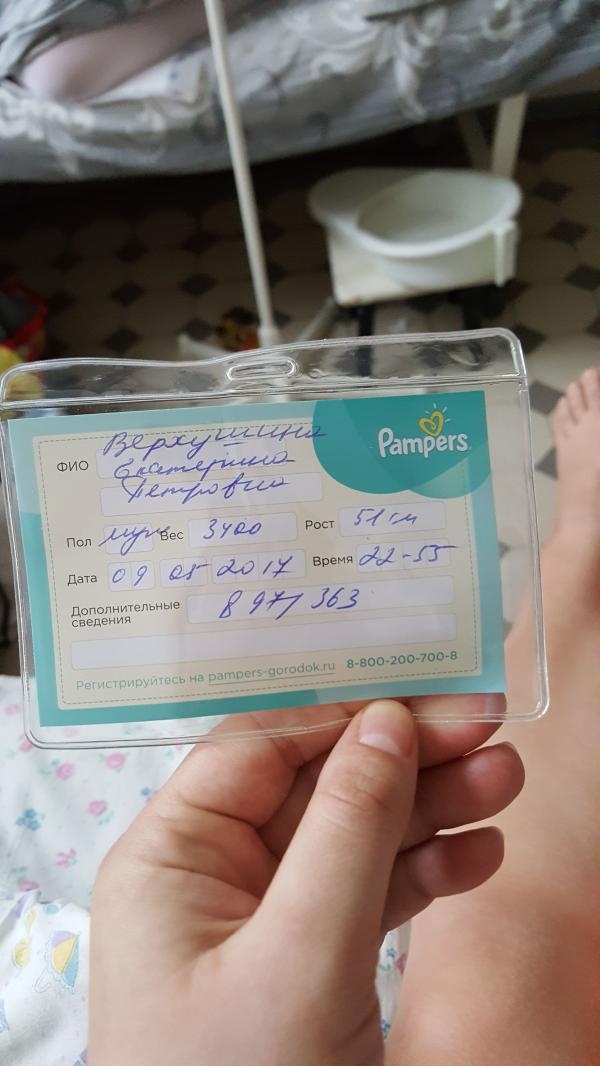 Pampers
ФИО Верхушина
Екатерина
Петровна
Пол муж Вес 3400 Рост 51 см
Дата 09 05 2017 Время 22-55
Дополнительные сведения 8 971 363
Регистрируйтесь на pampers-gorodok.ru 8-800-200-700-8